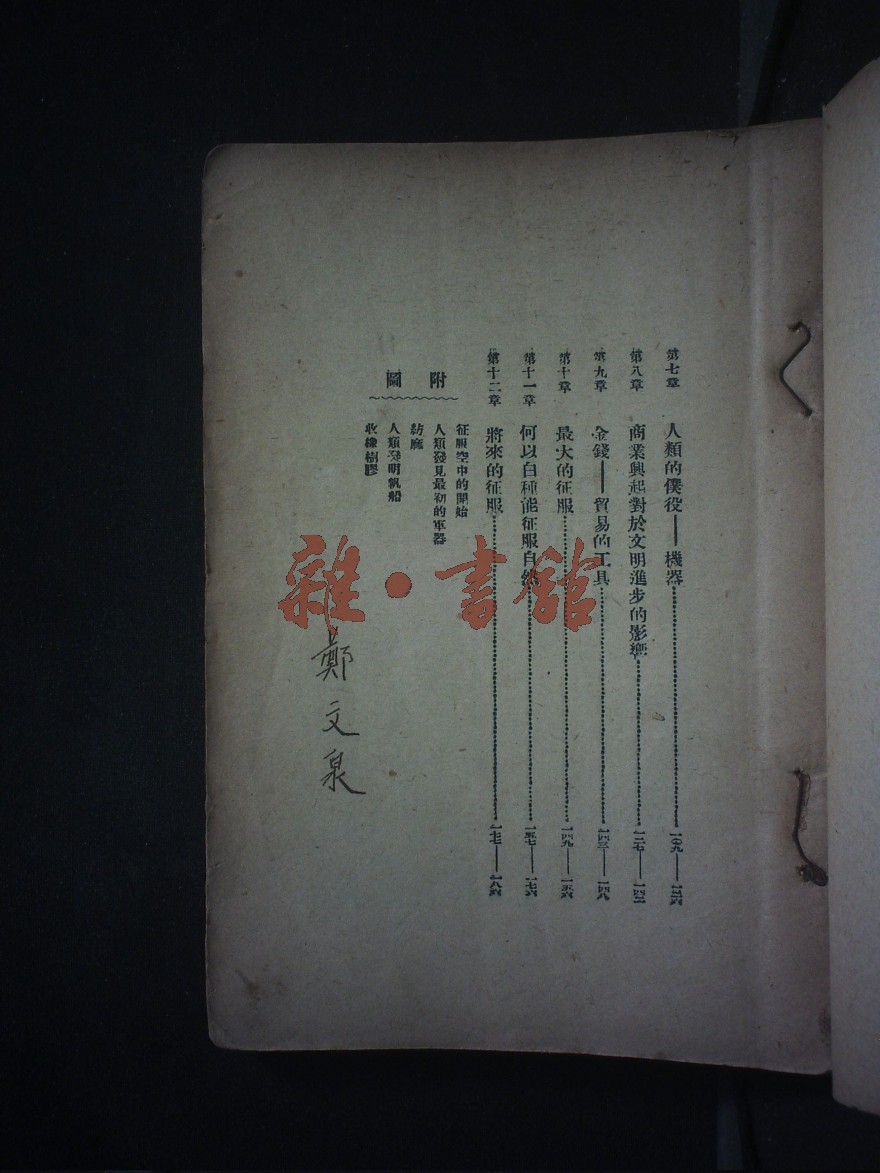 第七章 人類的僕役——機器……一〇九——一二六
第八章 商業興起對於文明進步的影響……一二七——一四二
第九章 金錢——貿易的工具……一四三——一四八
第十章 最大的征服……一四九——一五六
第十一章 何以白種能征服自然……一五七——一七六
第十二章 將來的征服……一七七——一八六
附圖
征服空中的開始
人類發見最初的軍器
紡廠
人類發明帆船
收橡樹膠
雜·書館
鄭文泉